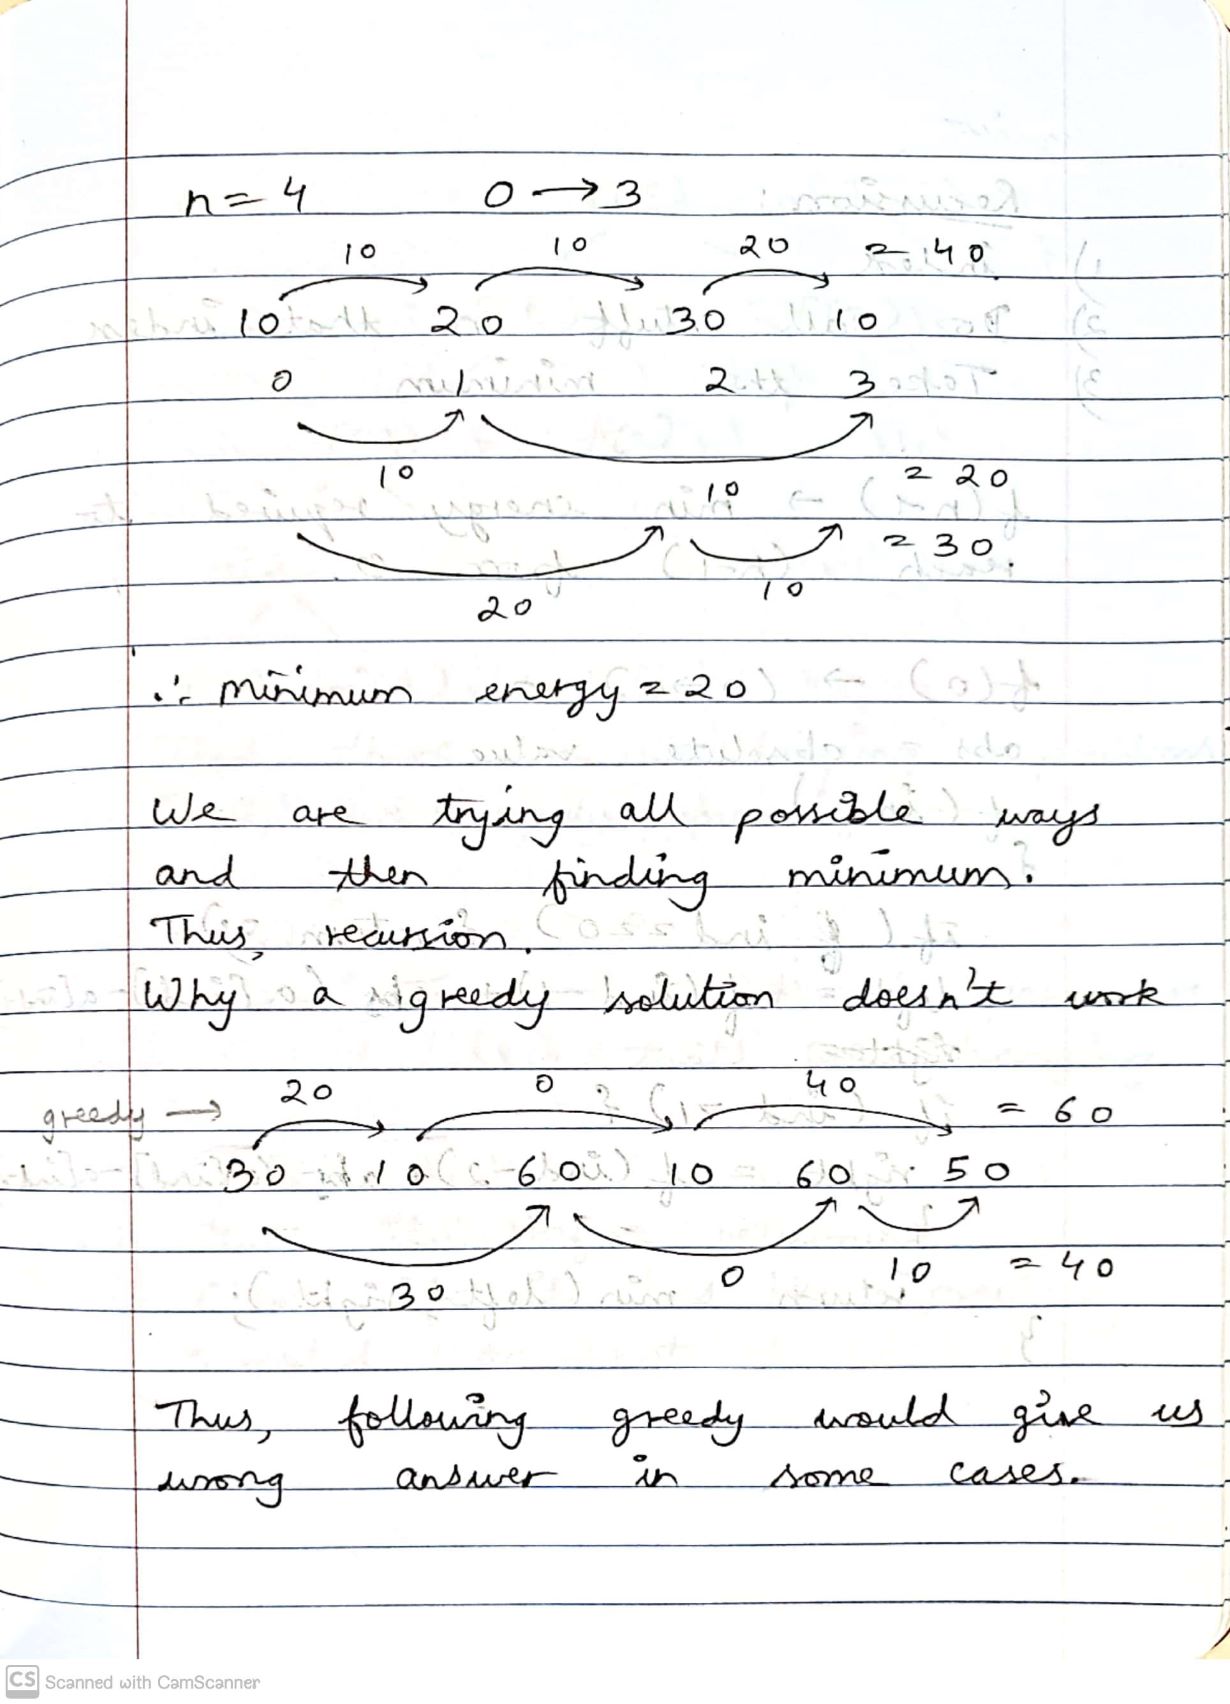 n = 4 0 → 3
10 10 20 = 40
10 20 30 10
0 1 2 3
10 10 = 20
20 10 = 30
∴ minimum energy = 20
We are trying all possible ways
and then finding minimum.
Thus, recursion.
Why a greedy solution doesn't work
20 0 40
greedy → = 60
30 10 60 10 60 50
30 0 10 = 40
Thus, following greedy would give us
wrong answer in some cases.
CS Scanned with CamScanner